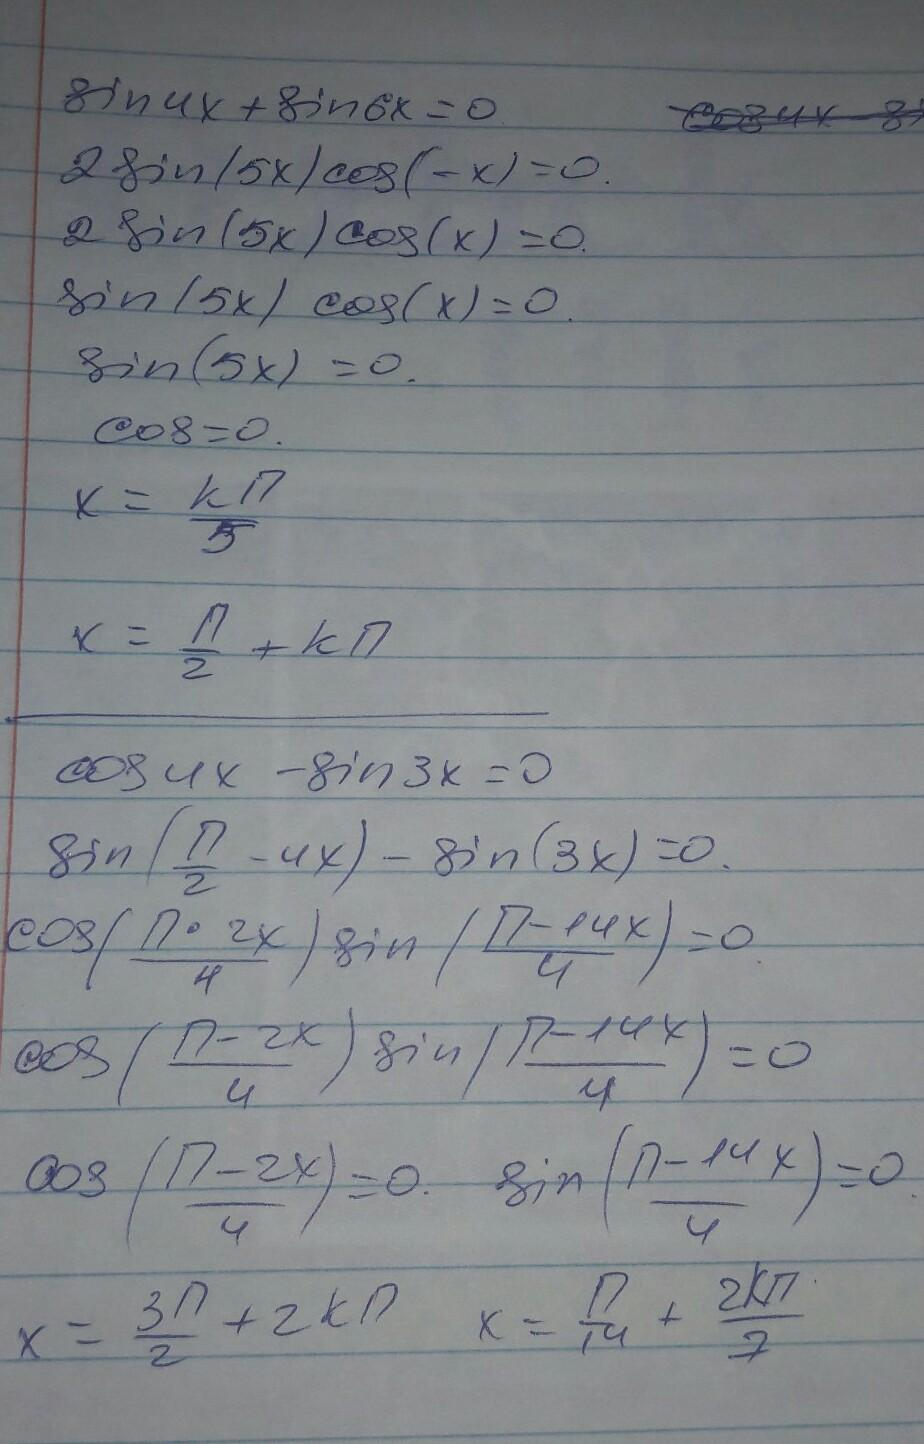 sin4x + sin6x = 0
cos4x - si
2 sin(5x) cos(-x) = 0.
2 sin(5x) cos(x) = 0.
sin(5x) cos(x) = 0.
sin(5x) = 0.
cos = 0.
x = kП/5
x = П/2 + kП
cos4x - sin3x = 0
sin(П/2 - 4x) - sin(3x) = 0.
cos(П・2x/4) sin(П-14x/4) = 0.
cos(П-2x/4) sin(П-14x/4) = 0
cos(П-2x/4) = 0. sin(П-14x/4) = 0.
x = 3П/2 + 2kП x = П/14 + 2kП/7